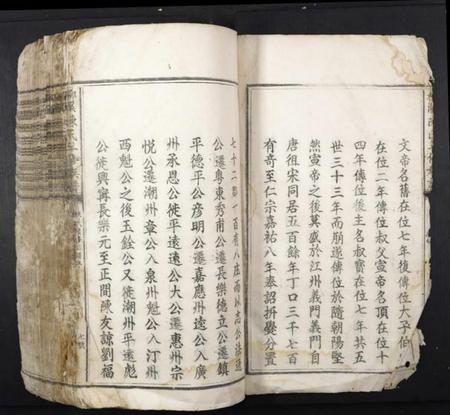 文帝名蒨在位七年後傳位大子伯
在位二年傳位叔父宣帝名頊在位十
四年傳位後主名叔寶在位七年共五
世三十三年而朋遂傳位於隋朝陽堅
然宣帝之後莫盛於江州義門義門自
唐祖宋同居五百餘年丁口三千七百
有奇至仁宗嘉祐八年奉詔拆爨分置
七十二縣一百有八庄而以志公法通
公遷粵東秀甫公遷長樂德立公遷鎮
平德平公彥明公遷嘉應州遠公入廣
州承恩公徙平遠遠公大公遷惠州宗
悅公遷潮州章公入泉州魁公入汀州
西魁公之後玉銓公又徙潮州平遠彪
公徙興寧長樂元至正間陳友諒劉福
七號